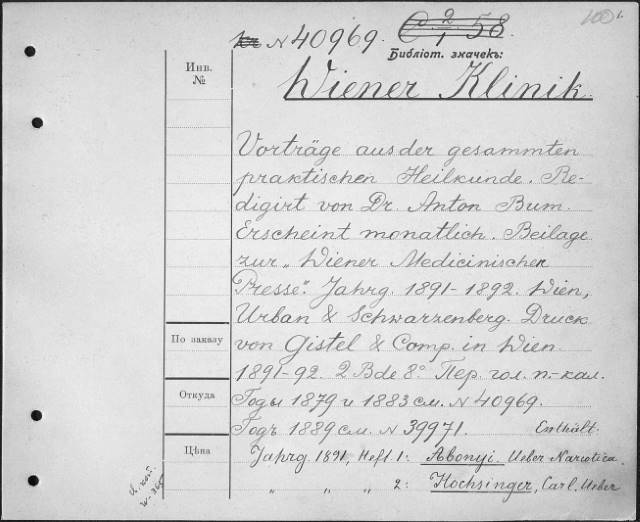 N 40969. C 2/1 58 100
Библіот. значекъ:
Инв. №
Wiener Klinik.
Vorträge aus der gesammten
praktischen Heilkunde. Re-
digirt von Dr. Anton Bum.
Erscheint monatlich. Beilage
zur „Wiener Medicinischen
Presse". Jahrg. 1891-1892. Wien,
Urban & Schwarzenberg. Druck
По заказу
von Gistel & Comp. in Wien
1891-92. 2 Bde 8°. Пер. гол. п.-кал.
Откуда
Годы 1879 и 1883 см. N 40969.
Годъ 1889 см. N 39971. Enthält:
Цѣна
Jahrg 1891, Heft 1: Abonyi. Ueber Narcotica.
„ „ „ 2: Hochsinger, Carl. Ueber